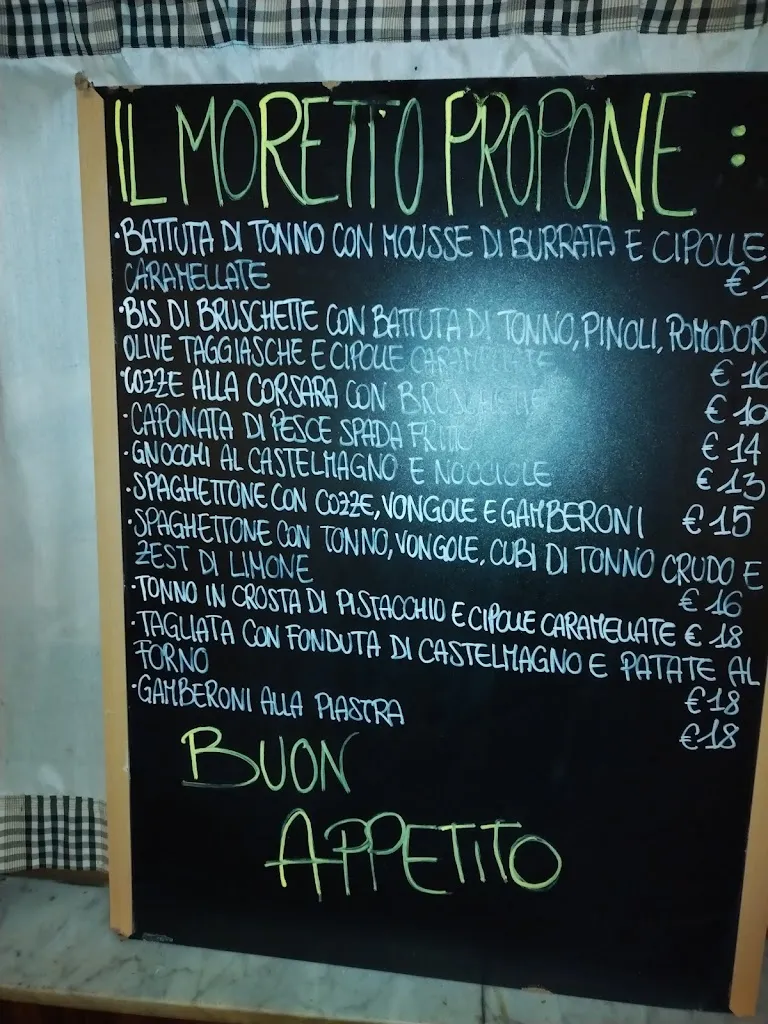 IL MORETTO PROPONE :
·BATTUTA DI TONNO CON MOUSSE DI BURRATA E CIPOLLE
CARAMELLATE €
·BIS DI BRUSCHETTE CON BATTUTA DI TONNO, PINOLI, POMODOR
OLIVE TAGGIASCHE E CIPOLLE CARAMELLATE € 16
·COZZE ALLA CORSARA CON BRUSCHETTE € 10
·CAPONATA DI PESCE SPADA FRITTO € 14
·GNOCCHI AL CASTELMAGNO E NOCCIOLE € 13
·SPAGHETTONE CON COZZE, VONGOLE E GAMBERONI € 15
·SPAGHETTONE CON TONNO, VONGOLE, CUBI DI TONNO CRUDO E
ZEST DI LIMONE € 16
·TONNO IN CROSTA DI PISTACCHIO E CIPOLLE CARAMELLATE € 18
·TAGLIATA CON FONDUTA DI CASTELMAGNO E PATATE AL
FORNO € 18
·GAMBERONI ALLA PIASTRA € 18
BUON
APPETITO